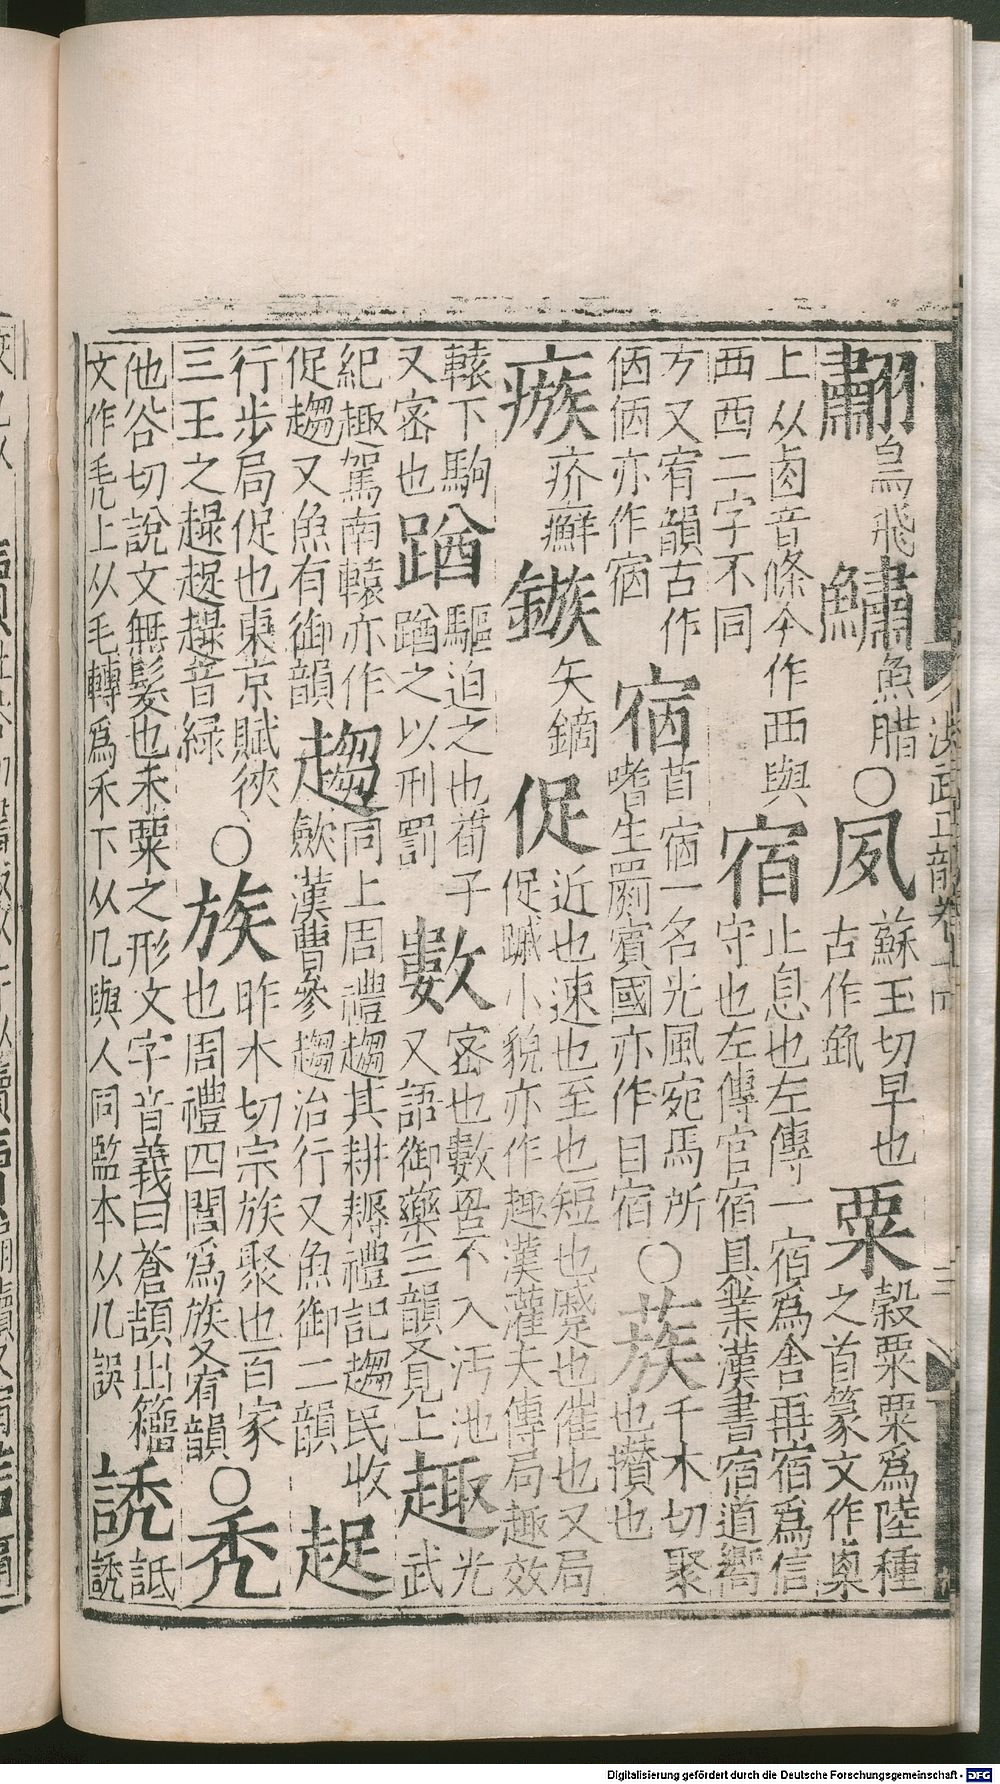 翿鳥飛鱐魚腊○夙蘇玉切早也古作𠈇粟穀粟粟爲陸種之首篆文作㮚
上从卤音條今作西與西西二字不同宿止息也左傳一宿爲舍再宿爲信守也左傳官宿其業漢書宿道嚮
方又宥韻古作㐁㐁亦作宿𪧐苜宿一名光風宛馬所嗜生罽賓國亦作目宿○蔟千木切聚也攢也
瘯疥癬鏃矢鏑促近也速也至也短也蹙也催也又局促䠞小貌亦作趣漢灌夫傳局趣效
轅下駒又密也蹜驅迫之也荀子蹜之以刑罰數密也數罟不入洿池又語御藥三韻又見上趣武光
紀趣駕南轅亦作促趨又魚有御韻趨同上周禮趨其耕耨禮記趨民收歛漢曹參趨治行又魚御二韻趗
行步局促也東京賦徠三王之趢趗趢音緑○族昨木切宗族聚也百家也周禮四閭爲族又宥韻○秃
他谷切說文無髮也禾粟之形文字音義曰蒼頡出籀文作秃上从毛轉爲禾下从几與人同監本从几誤誘詆誘
洪武正韻卷十四
Digitalisierung gefördert durch die Deutsche Forschungsgemeinschaft - DFG